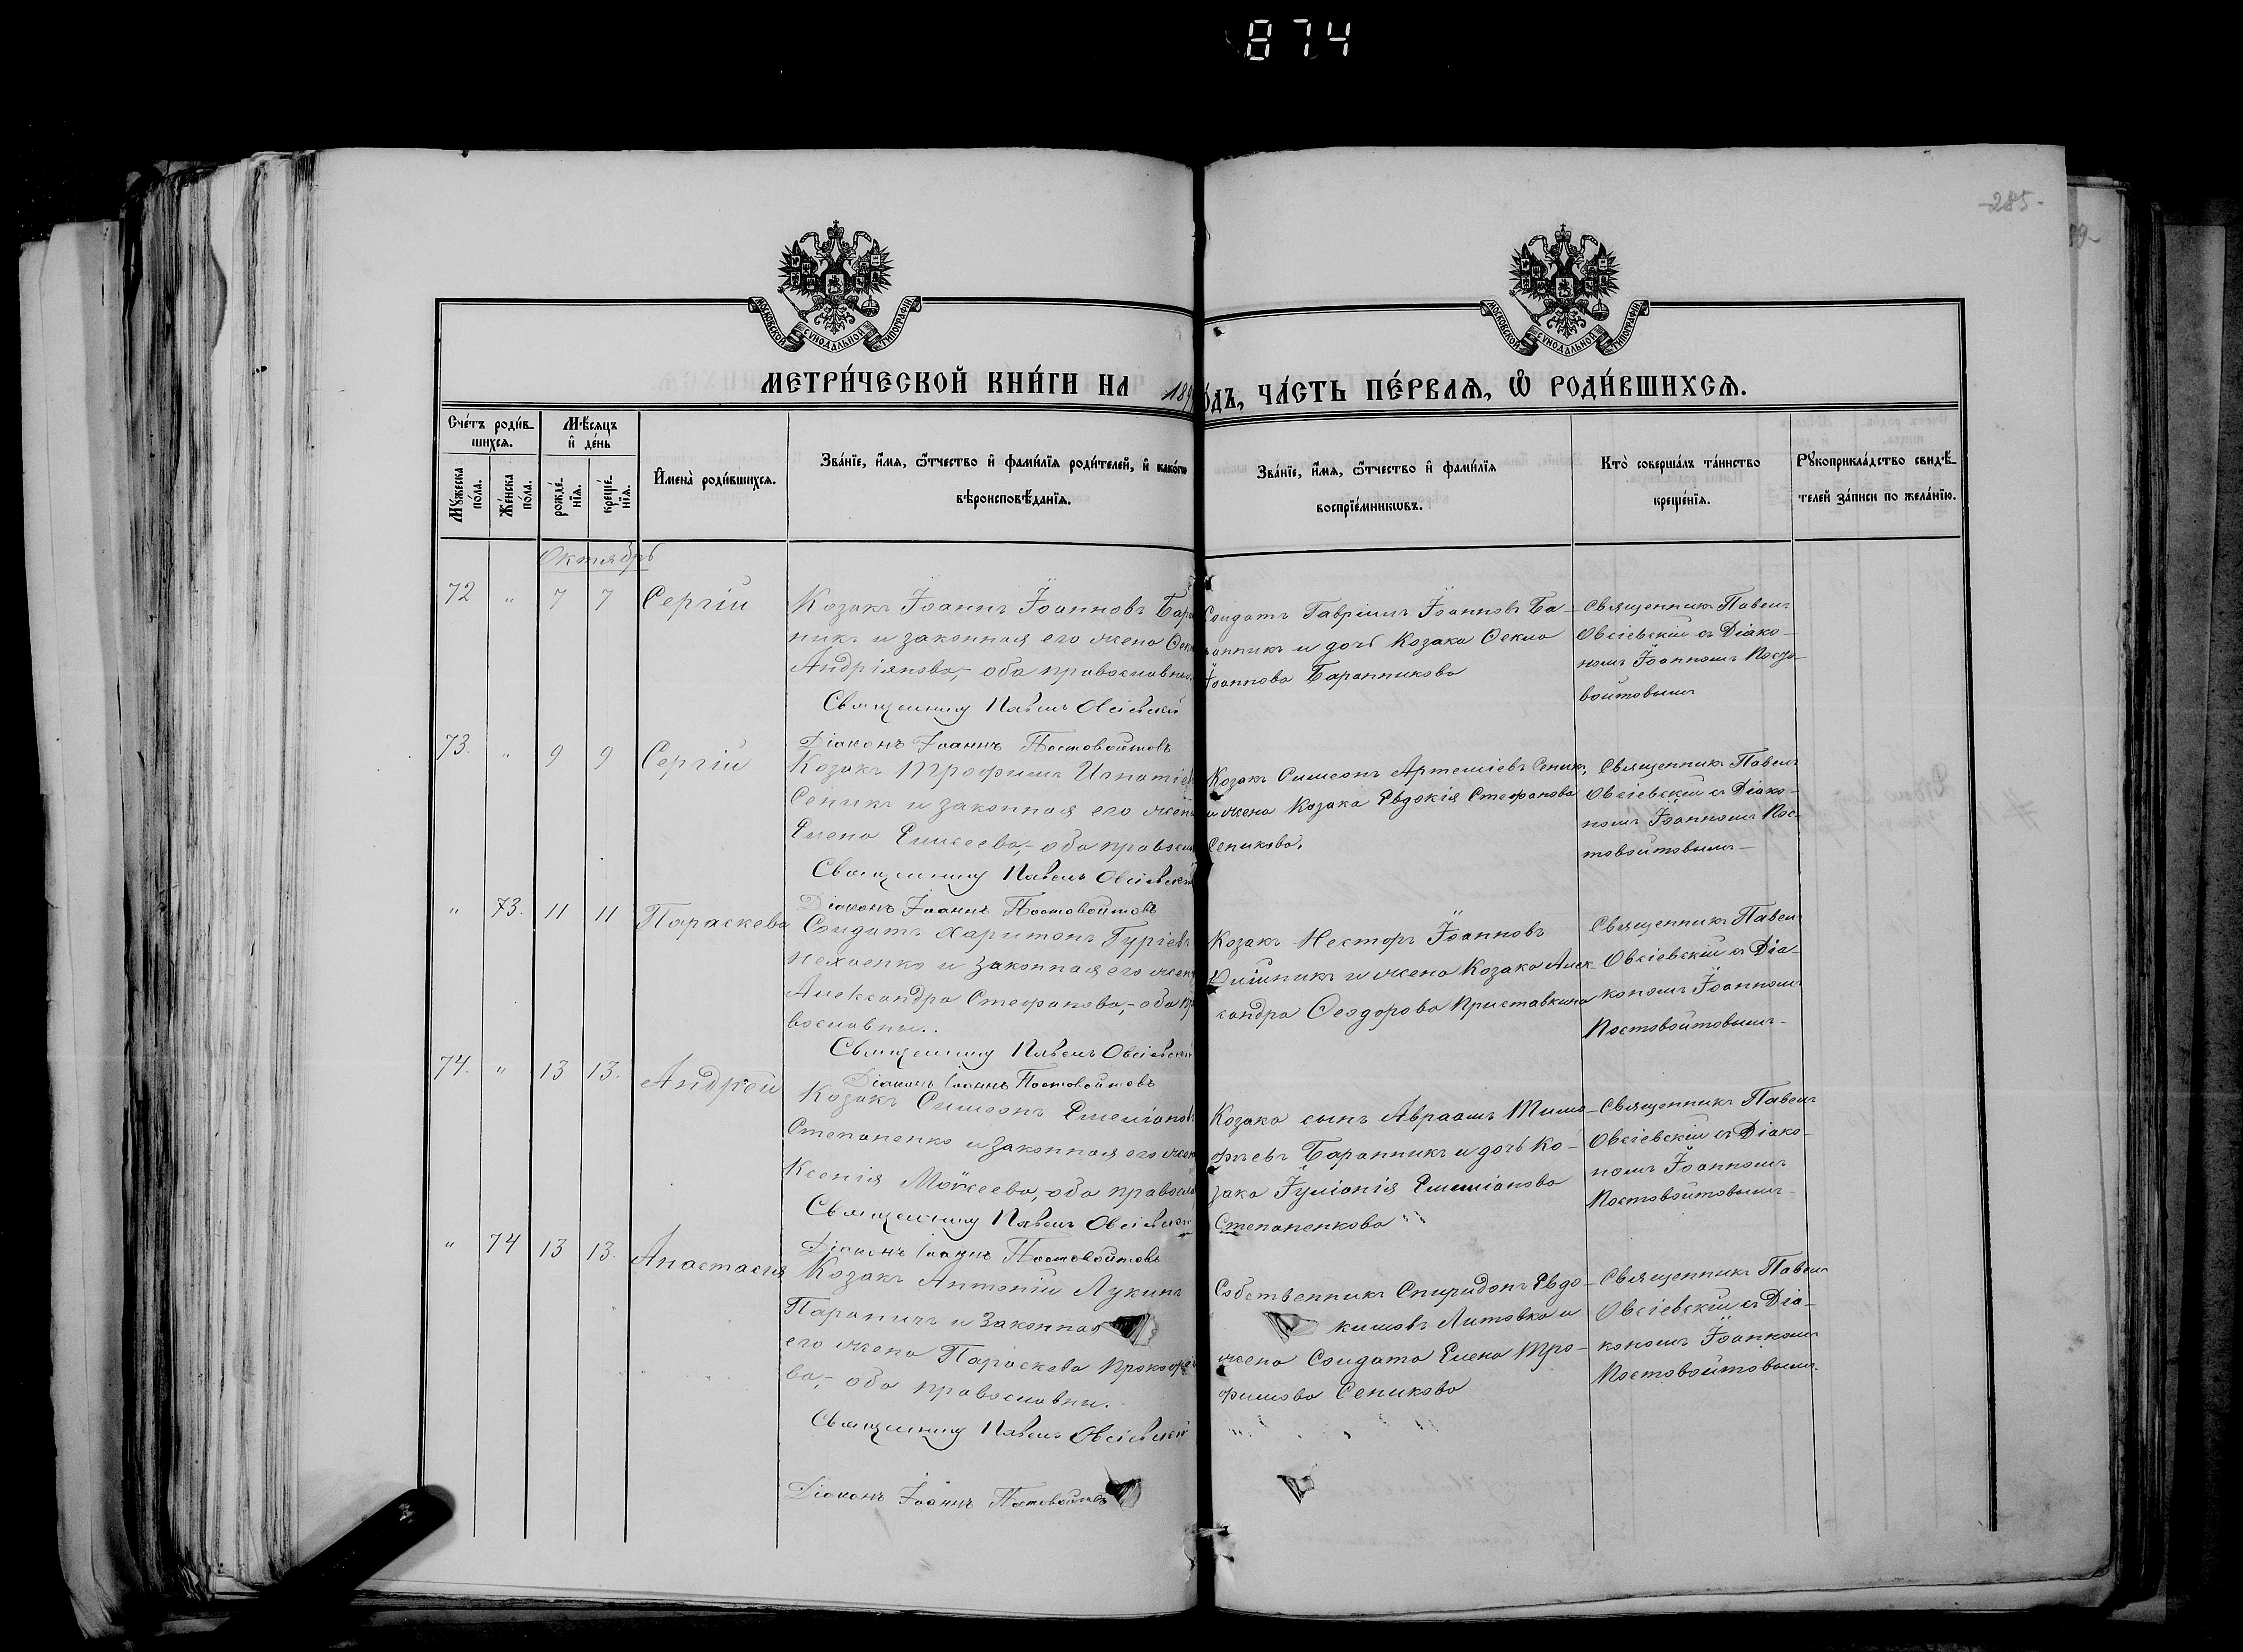 874
-285-
МОСКОВСКОЙ СУНОДАЛЬНОЙ ТИПОГРАФІИ
МОСКОВСКОЙ СУНОДАЛЬНОЙ ТИПОГРАФІИ
МЕТРИ́ЧЕСКОЙ КНИ́ГИ НА 189
ОДЪ, ЧА́СТЬ ПЕ́РВАѦ, Ѡ РОДИ́ВШИХСѦ.
Сче́тъ роди́в-
шихсѧ.
Мꙋжеска
по́ла.
Же́нска
по́ла.
Мѣ́сѧцъ
и҆ де́нь
рожде́-
нїѧ.
креще́-
нїѧ.
И҆мена̀ роди́вшихсѧ.
Зва́нїе, и҆́мѧ, ѻ҆́тчество и҆ фами́лїѧ роди́телей, и҆ како́гѡ
вѣроисповѣ́данїѧ.
Зва́нїе, и҆́мѧ, ѻ҆́тчество и҆ фами́лїѧ
воспрїе́мникѡвъ.
Кто̀ соверша́лъ та́инство
креще́нїѧ.
Рꙋкоприкла́дство свидѣ́-
телей за́писи по жела́нїю.
Октябрь
72 " 7 7 Сергій
Козакъ Іоаннъ Іоанновъ Бара
никъ и законная его жена Ѳек
Андріянова,- оба православны.
Священникъ Павелъ Овсіевскій
Діаконъ Іоаннъ Постовойтовъ
Солдатъ Гавріилъ Іоанновъ Ба-
ранникъ и дочь Козака Ѳекла
Іоаннова Баранникова
Священникъ Павелъ
Овсіевскій съ Діако-
номъ Іоанномъ Посто-
войтовымъ
73. " 9 9 Сергій
Козакъ Трофимъ Игнатіев
Сеникъ и законная его жена
Елена Елисеева,- оба правосла
Священникъ Павелъ Овсіевскій
Діаконъ Іоаннъ Постовойтовъ
Козакъ Симеонъ Артеміевъ Сеникъ,
и жена Козака Евдокія Стефанова
Сеникова.
Священникъ Павелъ
Овсіевскій съ Діако-
номъ Іоанномъ Пос-
товойтовымъ-
" 73. 11 11 Параскева
Солдатъ Харитонъ Гуріевъ
и законная его жена
Александра Стефанова,- оба пра
вославны..
Священникъ Павелъ Овсіевскій
Діаконъ Іоаннъ Постовойтовъ
Козакъ Несторъ Іоанновъ
и жена Козака Алек-
сандра Ѳеодорова Приставкина
Священникъ Павелъ
Овсіевскій съ Діа-
кономъ Іоанномъ
Постовойтовымъ-
74. " 13 13. Андрей
Козакъ Симеонъ Емеліанов
Степаненко и законная его жен
Ксенія Моѵсеева,- оба правосла
Священникъ Павелъ Овсіевскій
Діаконъ Іоаннъ Постовойтовъ
Козака сынъ Авраамъ Тимо-
фѣевъ Баранникъ и дочь Ко-
зака Іуліанія Емеліанова
Степаненкова
Священникъ Павелъ
Овсіевскій съ Діако-
номъ Іоанномъ
Постовойтовымъ-
" 74 13 13. Анастасія
Козакъ Антоній Лукинъ
и Законная
его жена Параскева Прокофіе
ва,- оба православны.
Священникъ Павелъ Овсіевскій
Діаконъ Іоаннъ Постовойтовъ
Собственникъ Спиридонъ Евдо-
кимовъ Литовка и
жена Солдата Елена Тро-
фимова Сеникова
Священникъ Павелъ
Овсіевскій съ Діа-
кономъ Іоанномъ
Постовойтовымъ.